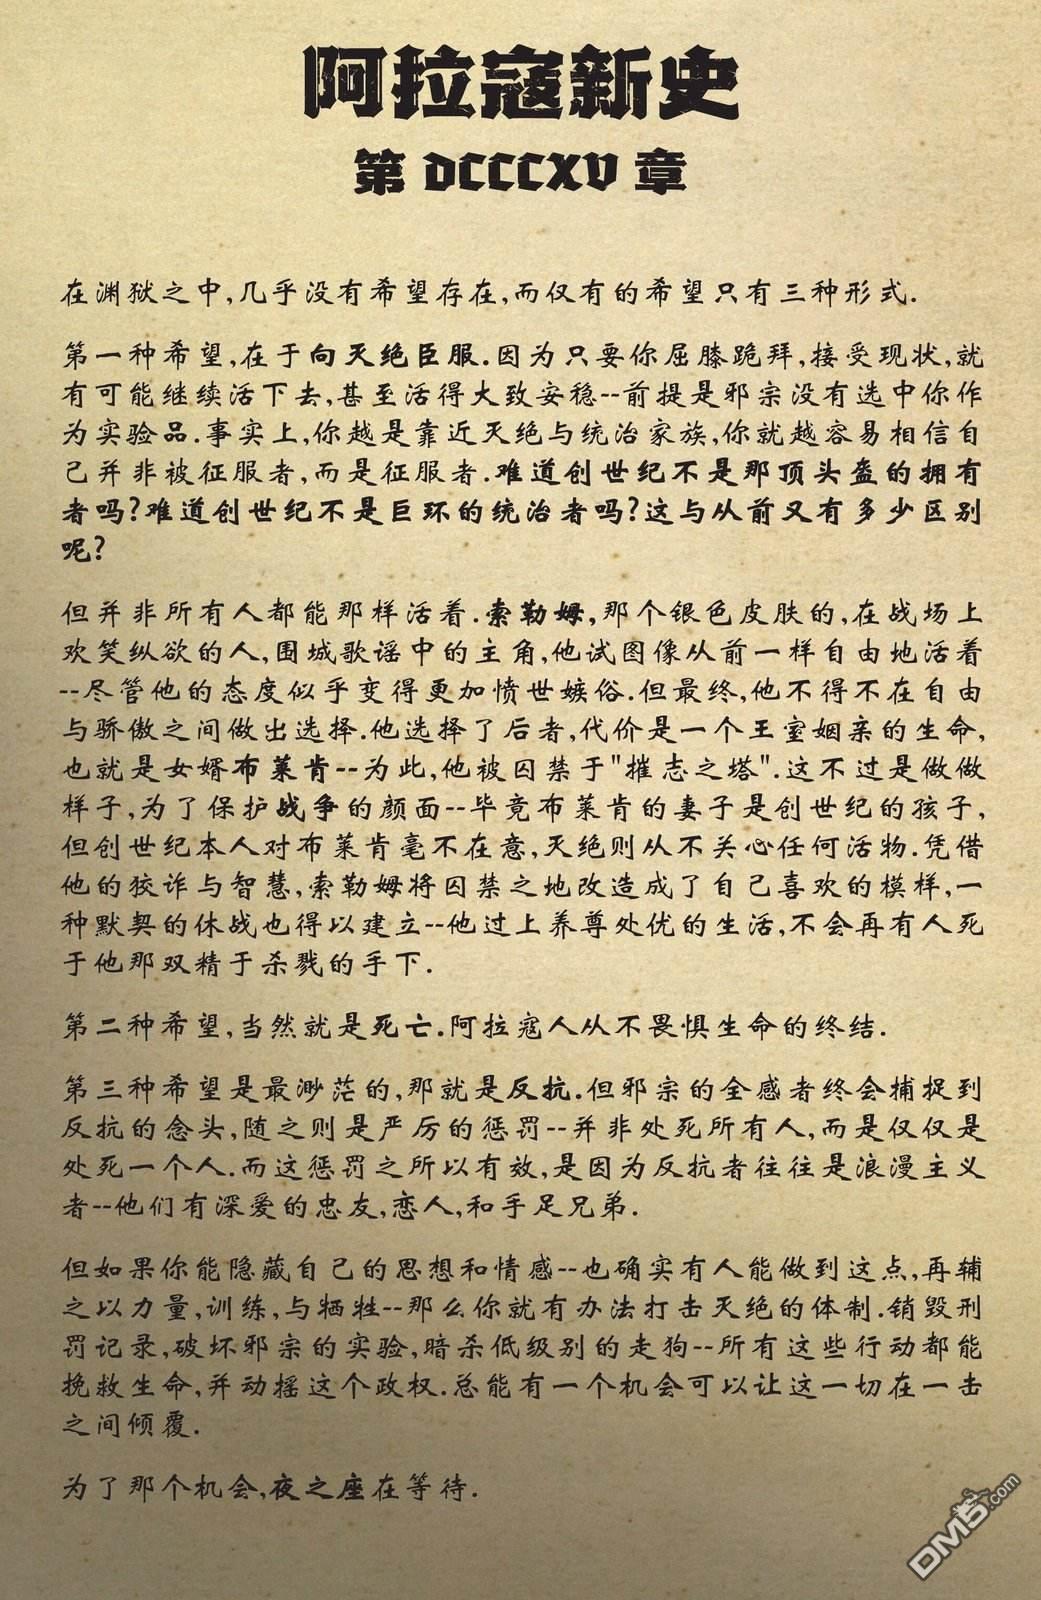 阿拉寇新史
第 DCCCXV 章
在渊狱之中,几乎没有希望存在,而仅有的希望只有三种形式.
第一种希望,在于向灭绝臣服.因为只要你屈膝跪拜,接受现状,就
有可能继续活下去,甚至活得大致安稳--前提是邪宗没有选中你作
为实验品.事实上,你越是靠近灭绝与统治家族,你就越容易相信自
己并非被征服者,而是征服者.难道创世纪不是那顶头盔的拥有
者吗?难道创世纪不是巨环的统治者吗?这与从前又有多少区别
呢?
但并非所有人都能那样活着.索勒姆,那个银色皮肤的,在战场上
欢笑纵欲的人,围城歌谣中的主角,他试图像从前一样自由地活着
--尽管他的态度似乎变得更加愤世嫉俗.但最终,他不得不在自由
与骄傲之间做出选择.他选择了后者,代价是一个王室姻亲的生命,
也就是女婿布莱肯--为此,他被囚禁于"摧志之塔".这不过是做做
样子,为了保护战争的颜面--毕竟布莱肯的妻子是创世纪的孩子,
但创世纪本人对布莱肯毫不在意,灭绝则从不关心任何活物.凭借
他的狡诈与智慧,索勒姆将囚禁之地改造成了自己喜欢的模样,一
种默契的休战也得以建立--他过上养尊处优的生活,不会再有人死
于他那双精于杀戮的手下.
第二种希望,当然就是死亡.阿拉寇人从不畏惧生命的终结.
第三种希望是最渺茫的,那就是反抗.但邪宗的全感者终会捕捉到
反抗的念头,随之则是严厉的惩罚--并非处死所有人,而是仅仅是
处死一个人.而这惩罚之所以有效,是因为反抗者往往是浪漫主义
者--他们有深爱的忠友,恋人,和手足兄弟.
但如果你能隐藏自己的思想和情感--也确实有人能做到这点,再辅
之以力量,训练,与牺牲--那么你就有办法打击灭绝的体制.销毁刑
罚记录,破坏邪宗的实验,暗杀低级别的走狗--所有这些行动都能
挽救生命,并动摇这个政权.总能有一个机会可以让这一切在一击
之间倾覆.
为了那个机会,夜之座在等待.
DM5.com